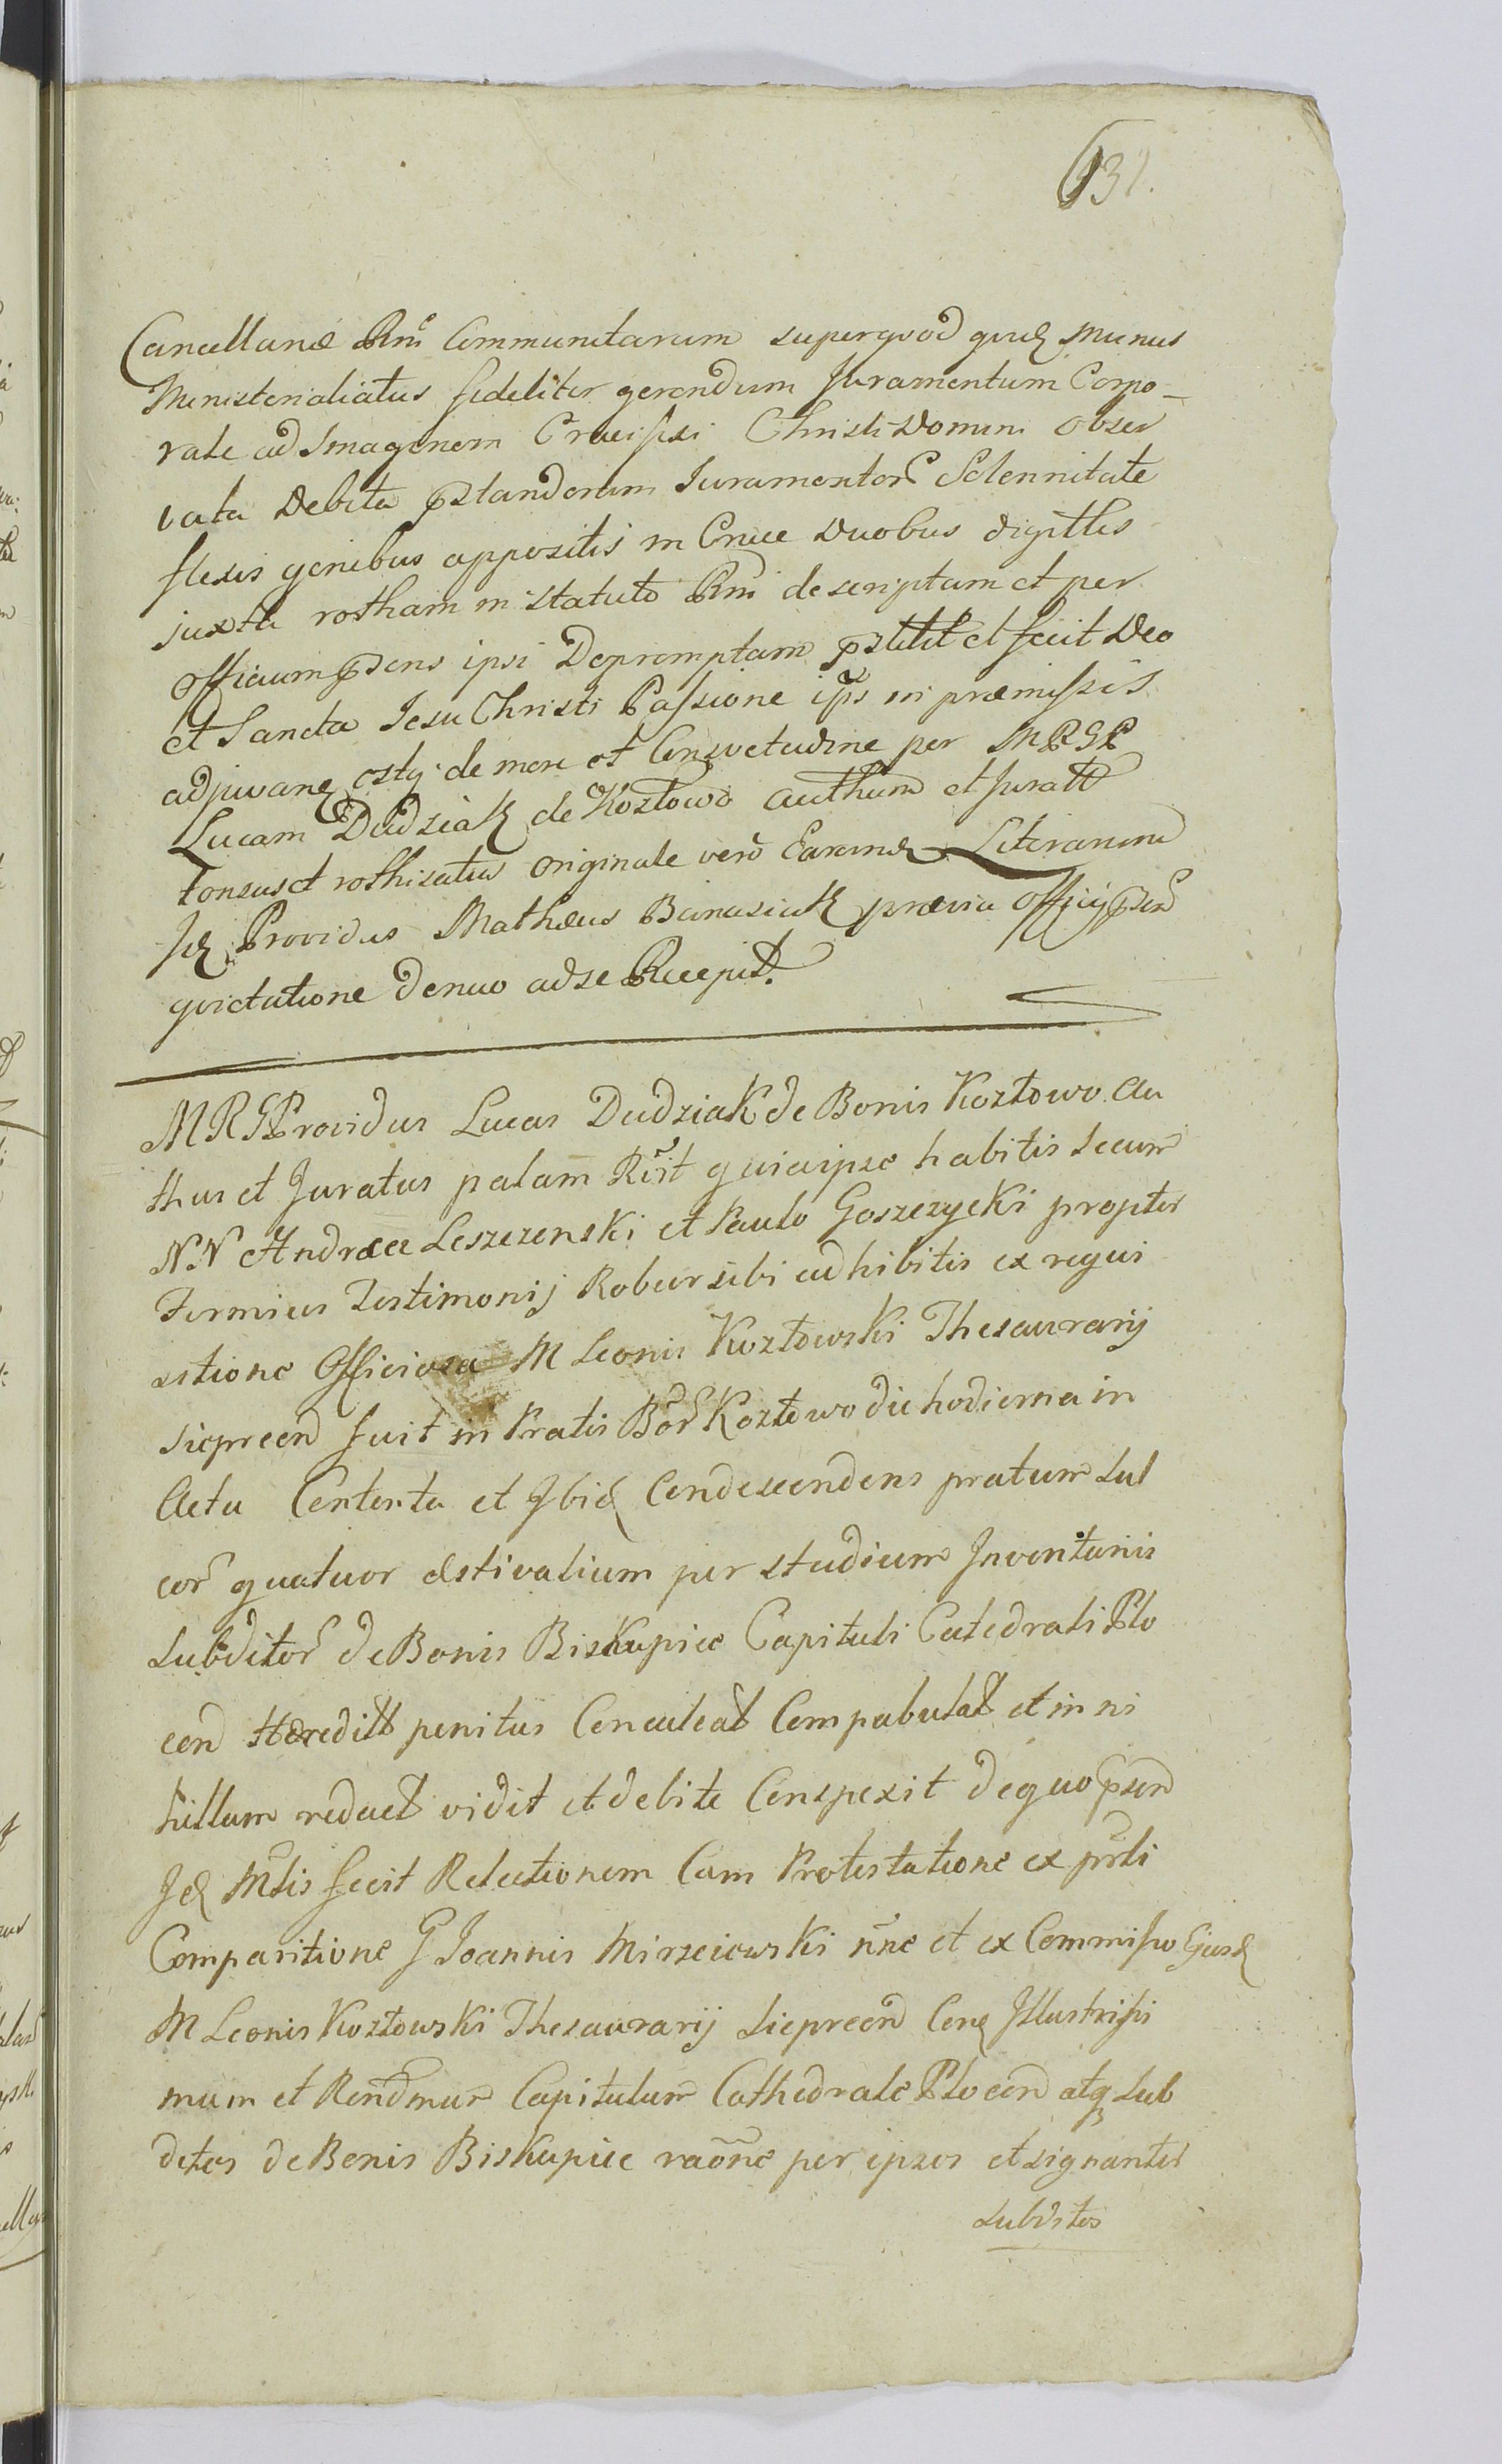 131.
Cancellariæ Rni Communitarum superqvod quid Munus
Ministerialiatus fideliter gerendum Juramentum Corpo-
rale ad Imaginem Crucifixi Christi Domini obser
vata Debita pstandorum Juramentor Solennitate
flexis genibus appositis in Cruce Duobus digitlis
juxta rotham in Statuto Rni descriptam et per
Officium psens ipsi Depromptam pstitit et fecit Deo
et Sancta Jesu Christi Passione ipso in præmissis
adjuvane de more et Consvetudine per MRGP
Lucam Dudziak de Kozłowo authum et Juratt
tonsus et rothisatus originale vero Earund Literarum
Id Providus Mathæus Banasiak prævia Officij psen
qvietatione denuo ad se Recepit.
MRGProvidus Lucas Dudziak de Bonis Kozłowo Au
thus et Juratus palam Rcit quia ipse habitis secum
NN Andrææ Leszczenski et Paulo Goszczycki propter
Firmius Testimonij Robur sibi adhibitis ex requi
sitione Officiosa M Leonis Kozłowski Thesaurarij
Siepreen fuit in Pratis Bor Kozłowo die hodierna in
Actu Contenta et Ibid Condescendens pratum Sul
cor quatuor æstivalium per studium Inventaris
Subditor de Bonis Biskupice Capituli Catedrali Plo
cen Hæreditt penitus Conculcat Compabulat et in ni
hillum redact vidit et debite Conspexit de quo psen
Id Mlis fecit Relationem Cum Protestatione ex prli
Comparitione G Joannis Mirzeiewski nne et ex Commisso Ejusd
M Leonis Kozłowski Thesaurarij Siepreen Cone Illustrissi
mum et Rendmum Capitulum Cathedrale Plocen atq Sub
ditos de Bonis Biskupice raone per ipsos et signanter
Subditos